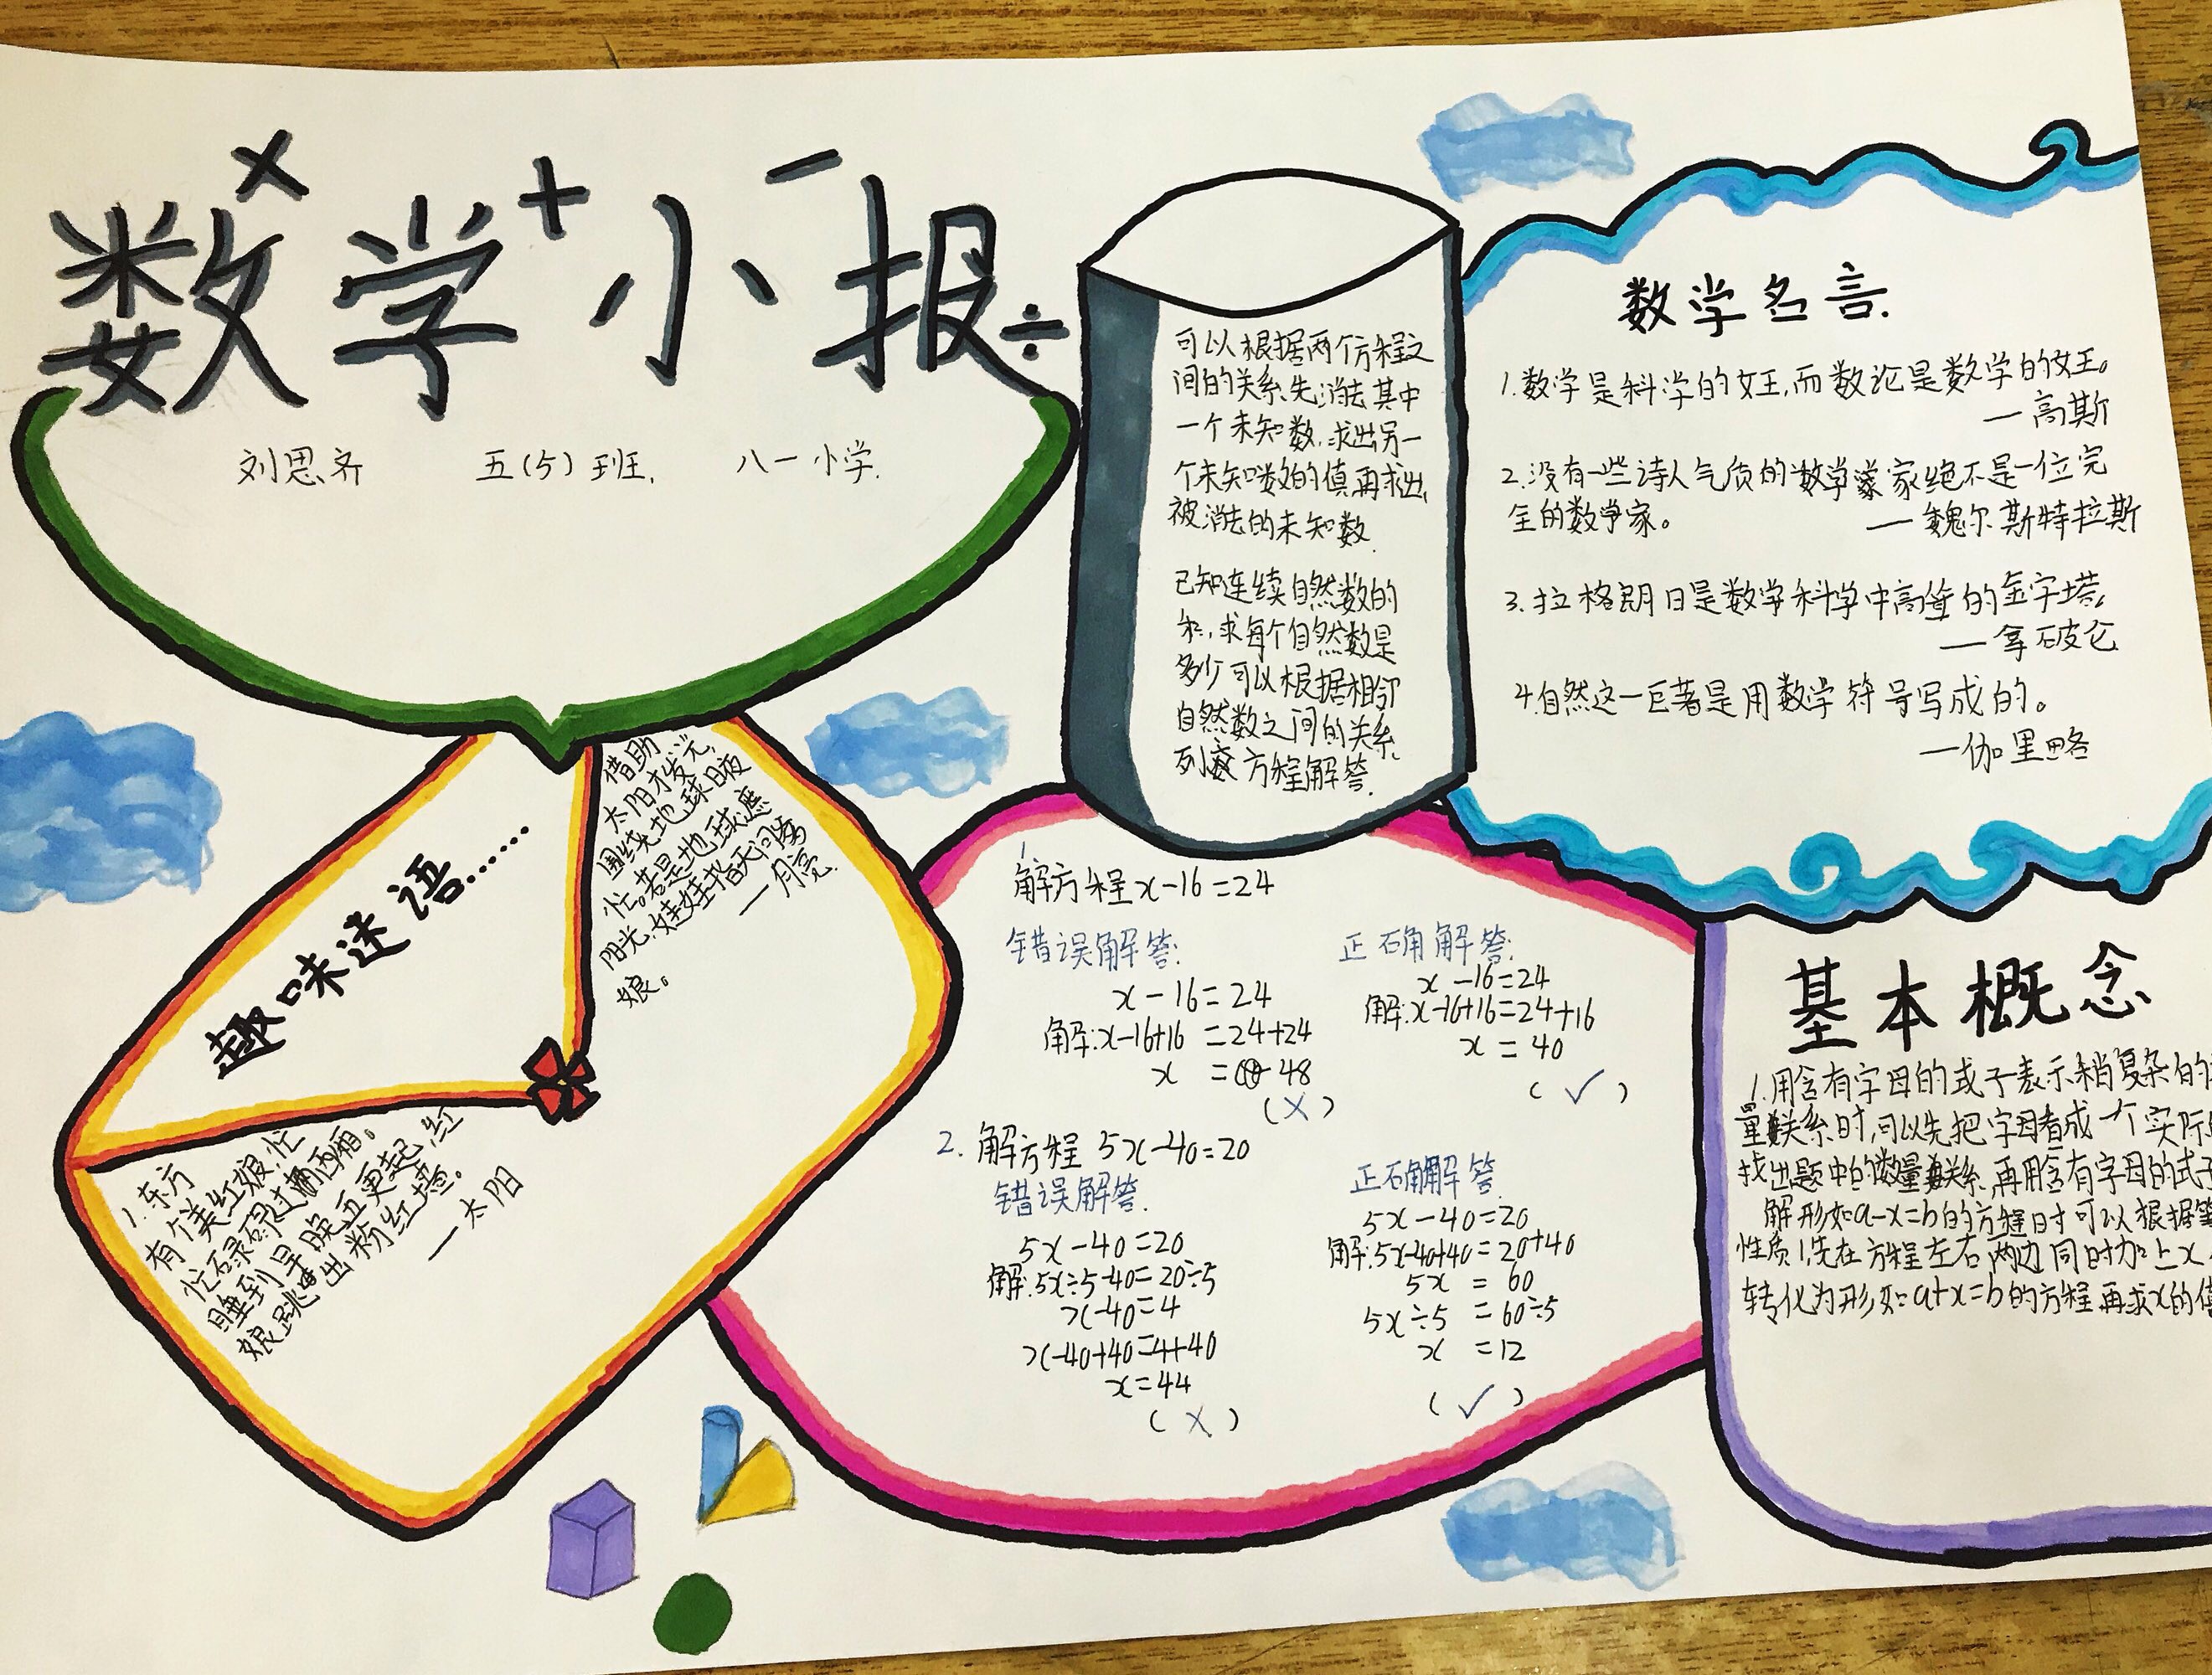 数学小报
× + － ÷
刘思齐 五(5)班. 八一小学.
可以根据两个方程之
间的关系,先消去其中
一个未知数,求出另一
个未知数的值,再求出,
被消去的未知数.
已知连续自然数的
和,求每个自然数是
多少可以根据相邻
自然数之间的关系,
列 方程解答.
数学名言.
1.数学是科学的女王,而数论是数学的女王。
—高斯
2.没有一些诗人气质的数学家绝不是一位完
全的数学家。
—魏尔斯特拉斯
3.拉格朗日是数学科学中高耸的金字塔。
—拿破仑
4.自然这一巨著是用数学符号写成的。
—伽里略
趣味迷语......
借助
太阳才发光,
围绕地球日夜
忙。若是地球遮
阳光,娃娃指天问
娘。
—月亮.
1.东方
有个美红娘,忙
忙碌碌过两厢。
睡到早晚五更起,红
娘跳出粉红墙。
—太阳
1
解方程x-16=24
错误解答:
x-16=24
解:x-16+16=24+24
x=48
(×)
正确解答:
x-16=24
解:x-16+16=24+16
x=40
(✓)
2.解方程 5x-40=20
错误解答.
5x-40=20
解:5x÷5-40=20÷5
x-40=4
x-40+40=4+40
x=44
(×)
正确解答.
5x-40=20
解:5x-40+40=20+40
5x=60
5x÷5=60÷5
x=12
(✓)
基本概念
1.用含有字母的式子表示稍复杂的
量关系时,可以先把字母看成一个实际
找出题中的数量关系,再用含有字母的式子
解形如a-x=b的方程时可以根据等
性质1,先在方程左右两边同时加上x,
转化为形如a+x=b的方程再求x的值